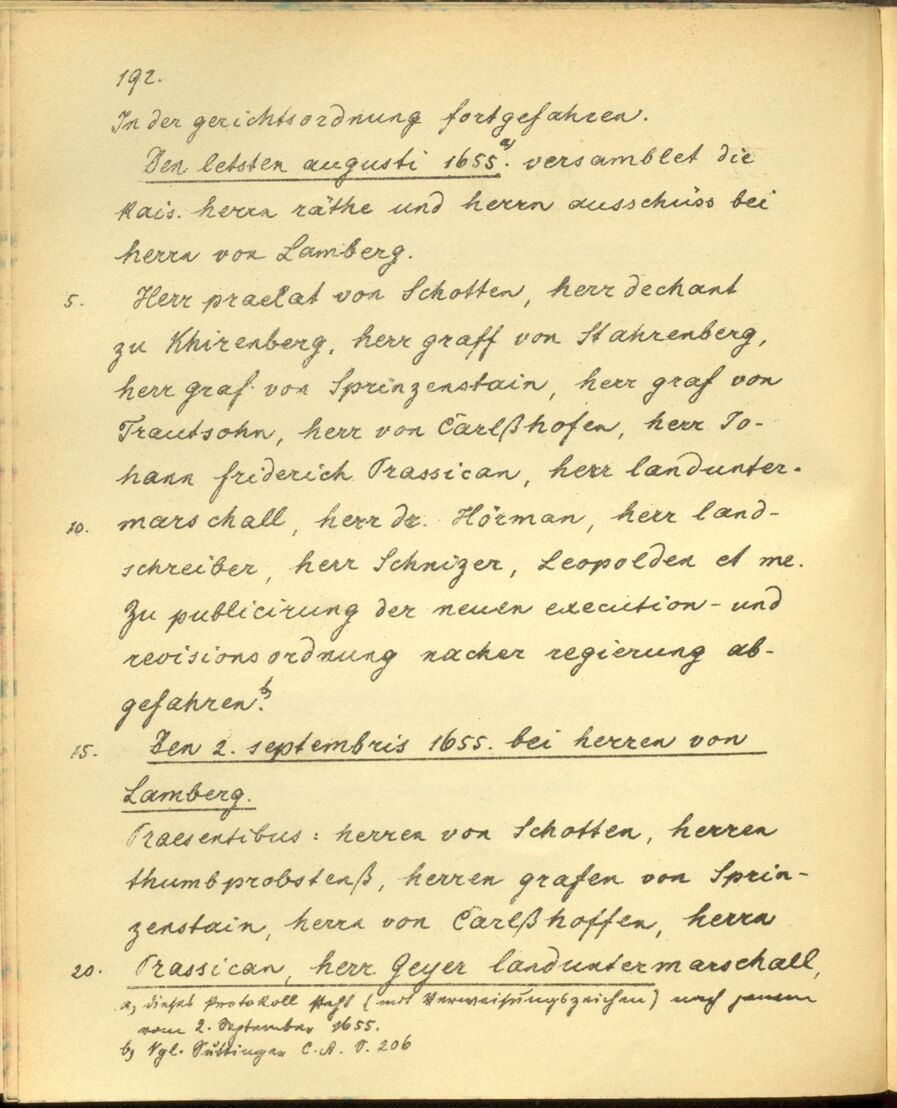 192.
In der gerichtsordnung fortgefahren.
Den letsten augusti 1655.a) versamblet die
kais. herrn räthe und herrn ausschüss bei
herrn von Lamberg.
5. Herr praelat von Schotten, herr dechant
zu Khirenberg, herr graff von Stahrenberg,
herr graf von Sprinzenstain, herr graf von
Trautsohn, herr von Carlßhofen, herr Jo-
hann friderich Prassican, herr landunter-
10. marschall, herr dr. Hörman, herr land-
schreiber, herr Schnizer, Leopolden et me.
Zu publicirung der neuen execution- und
revisionsordnung nacher regierung ab-
gefahren.b)
15. Den 2. septembris 1655. bei herren von
Lamberg.
Praesentibus: herren von Schotten, herren
thumbprobstenß, herren grafen von Sprin-
zenstain, herrn von Carlßhoffen, herrn
20. Prassican, herr Geyer landuntermarschall,
a) dieses Protokoll steht (mit Verweisungszeichen) nach jenem
vom 2. September 1655.
b) Vgl. Suttinger C. A. S. 206